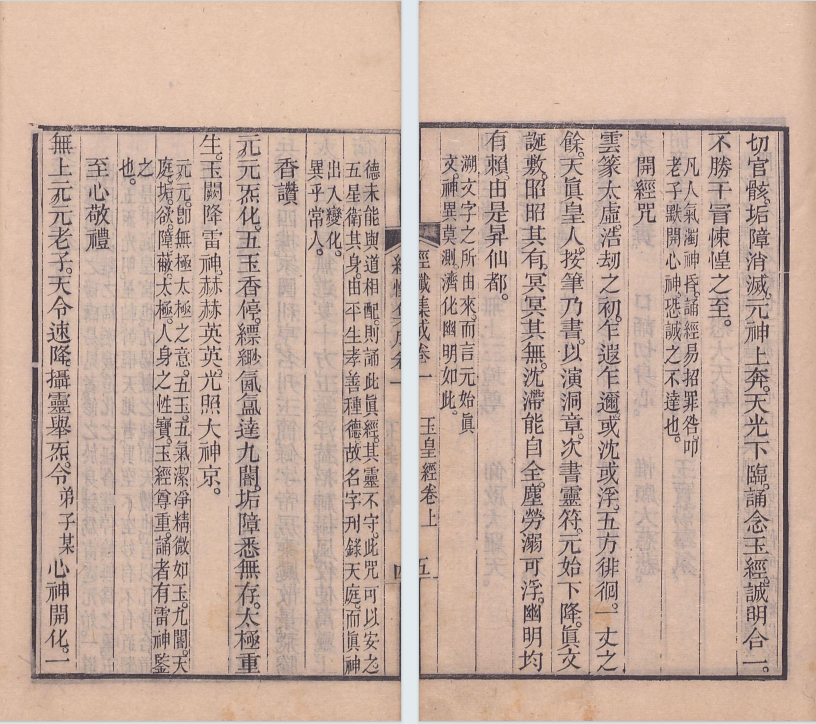 切官骸。垢障消滅。元神上奔。天光下臨。誦念玉經。誠明合一。
不勝干冒悚惶之至。
凡人氣濁神昏。誦經易招罪咎。叩
老子默開心神恐誠之不達也。
開經咒
雲篆太虛。浩劫之初。乍遐乍邇。或沈或浮。五方徘徊。一丈之
餘。天眞皇人。按筆乃書。以演洞章。次書靈符。元始下降。眞文
誕敷。昭昭其有。冥冥其無。沈滯能自全。塵勞溺可浮。幽明均
有賴。由是昇仙都。
溯文字之所由來。而言元始眞
文。神異莫測。濟化幽明如此。
經懺集成卷一 玉皇經卷上 五
四
德未能與道相配。則誦此眞經。其靈不守。此咒可以安之
五星衛其身。由平生孝善種德。故名字刊錄天庭。而眞神
出入變化。
異乎常人。
香讚
元元炁化。五玉香停。縹緲氤氳達九閽。垢障悉無存。太極重
生。玉闕降雷神。赫赫英英。光照大神京。
元元。卽無極太極之意。五玉。五氣潔凈精微如玉。九閽。天
庭。垢欲。障蔽。太極。人身之性寶。玉經尊重。誦者有雷神鑒
之
也。
至心敬禮
無上元元老子。天令速降。攝靈舉炁。令弟子某心神開化。一